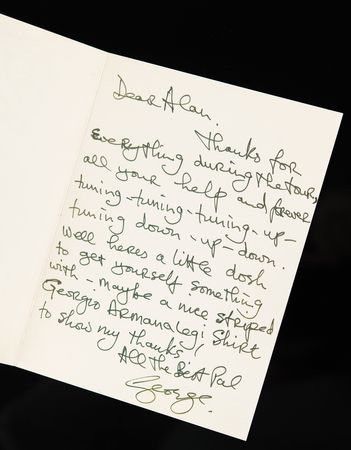 Dear Alan.
Thanks for
everything during the tours,
all your help and forever
tuning-tuning-tuning-up-
tuning down-up-down.
Well heres a little dosh
to get yourself something
with - maybe a nice striped
Georgio Armanalegi Shirt
to show my thanks,
All the Best Pal
George.